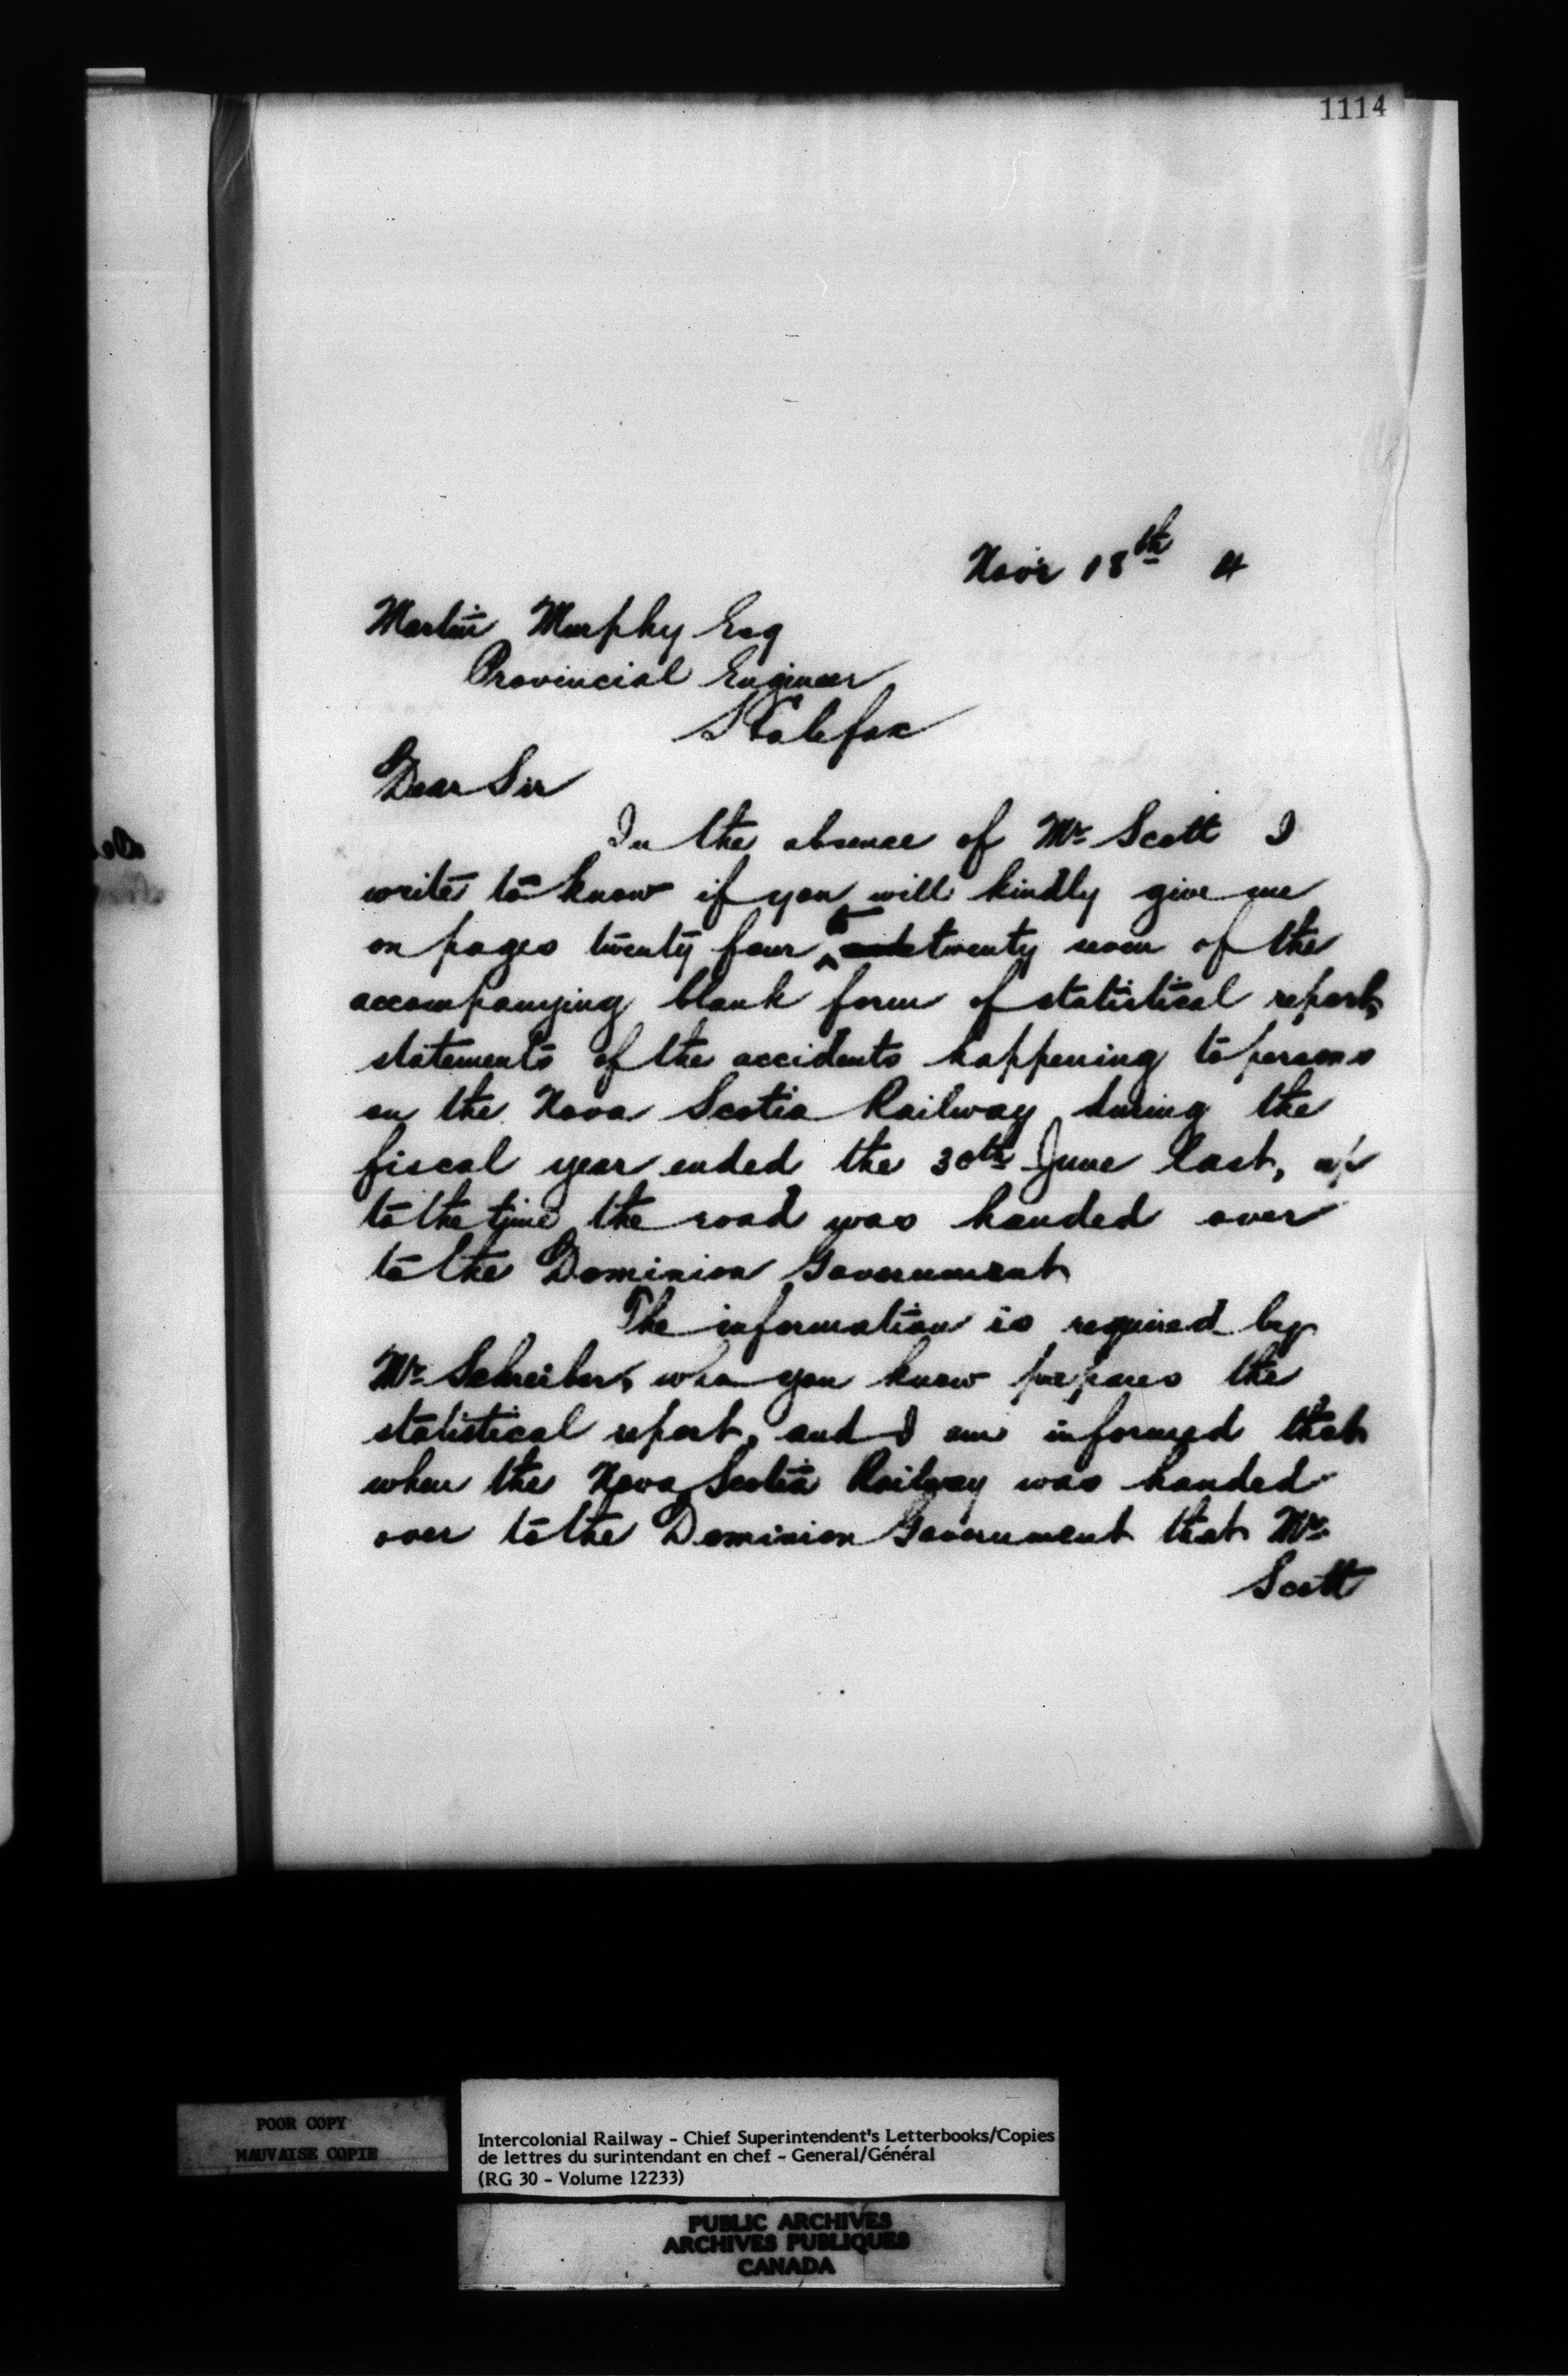 1114
Nov'r 18th 4
Martin Murphy Esq
Provincial Engineer
Halifax
Dear Sir
In the absence of Mr Scott I
write to know if you will kindly give me
on pages twenty four to twenty seven of the
accompanying blank form of statistical report,
statements of the accidents happening to persons
on the Nova Scotia Railway during the
fiscal year ended the 30th June last, up
to the time the road was handed over
to the Dominion Government
The information is required by
Mr Schreiber, who you know prepares the
statistical report, and I am informed that
when the Nova Scotia Railway was handed
over to the Dominion Government that Mr
Scott
POOR COPY
MAUVAISE COPIE
Intercolonial Railway - Chief Superintendent's Letterbooks/Copies
de lettres du surintendant en chef - General/Général
(RG 30 - Volume 12233)
PUBLIC ARCHIVES
ARCHIVES PUBLIQUES
CANADA